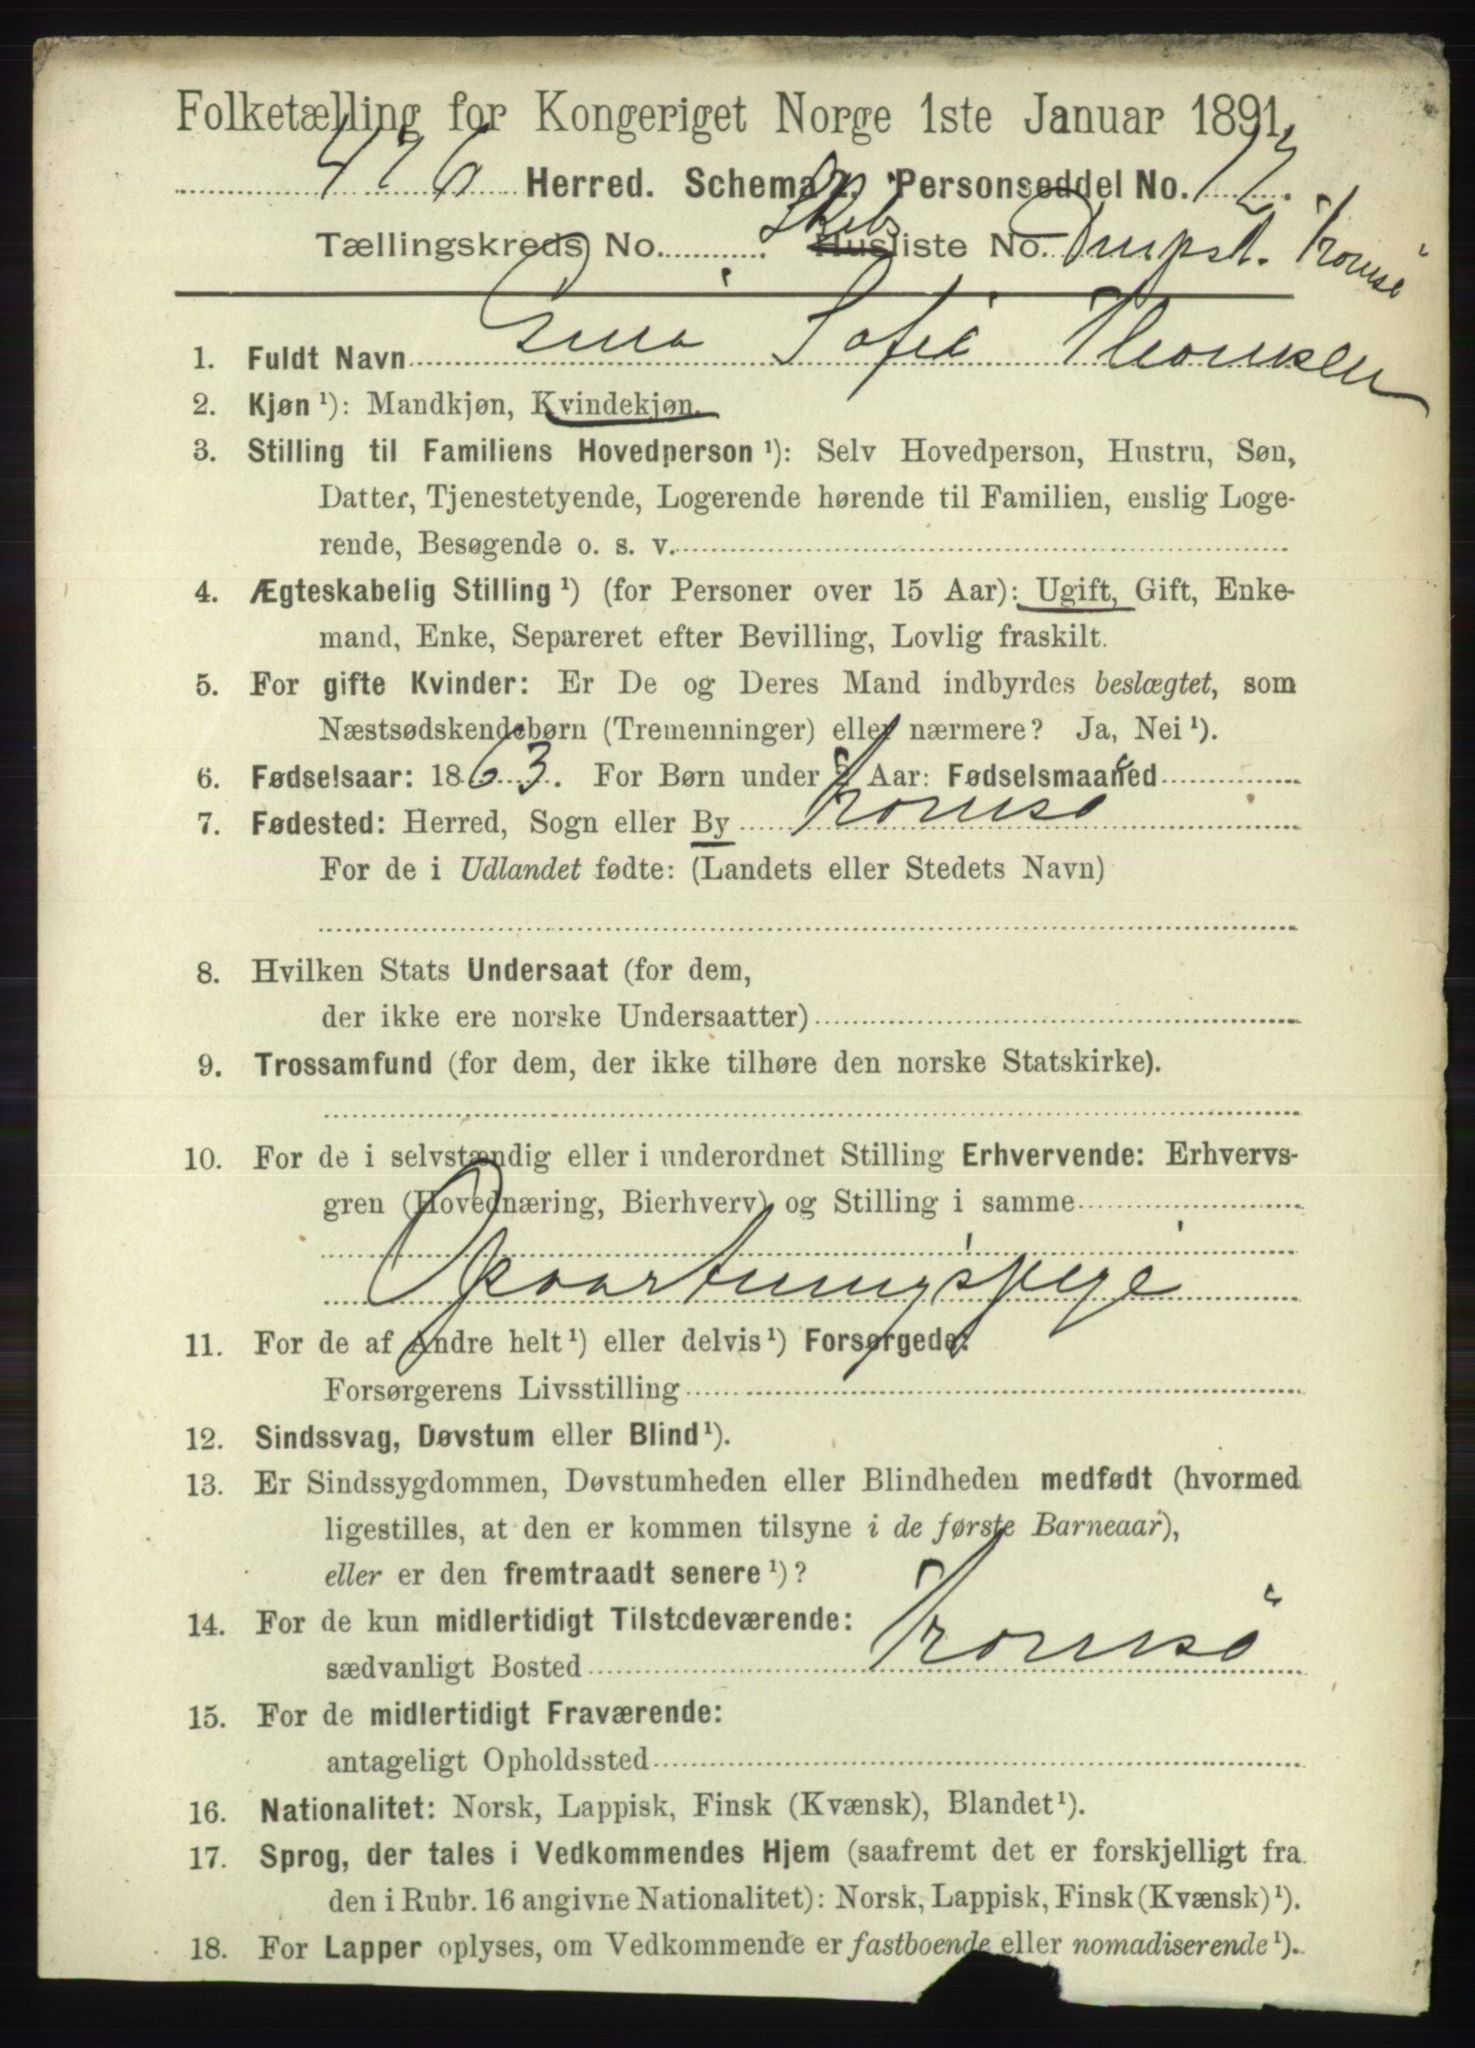 Folketælling for Kongeriget Norge 1ste Januar 1891.
476 Herred. Schema 2. Personseddel No. 12.
Tællingskreds No. Skibsliste No. Dmpsk. Tromsö
1. Fuldt Navn Sofie Thomsen
2. Kjøn ¹): Mandkjøn, Kvindekjøn.
3. Stilling til Familiens Hovedperson ¹): Selv Hovedperson, Hustru, Søn,
Datter, Tjenestetyende, Logerende hørende til Familien, enslig Loge-
rende, Besøgende o. s. v.
4. Ægteskabelig Stilling ¹) (for Personer over 15 Aar): Ugift, Gift, Enke-
mand, Enke, Separeret efter Bevilling, Lovlig fraskilt.
5. For gifte Kvinder: Er De og Deres Mand indbyrdes beslægtet, som
Næstsødskendebørn (Tremenninger) eller nærmere? Ja, Nei ¹).
6. Fødselsaar: 1863. For Børn under 2 Aar: Fødselsmaaned
7. Fødested: Herred, Sogn eller By Tromsö
For de i Udlandet fødte: (Landets eller Stedets Navn)
8. Hvilken Stats Undersaat (for dem,
der ikke ere norske Undersaatter)
9. Trossamfund (for dem, der ikke tilhøre den norske Statskirke).
10. For de i selvstændig eller i underordnet Stilling Erhvervende: Erhvervs-
gren (Hovednæring, Bierhverv) og Stilling i samme
Opvartningspige
11. For de af Andre helt ¹) eller delvis ¹) Forsørgede:
Forsørgerens Livsstilling
12. Sindssvag, Døvstum eller Blind ¹).
13. Er Sindssygdommen, Døvstumheden eller Blindheden medfødt (hvormed
ligestilles, at den er kommen tilsyne i de første Barneaar),
eller er den fremtraadt senere ¹)?
14. For de kun midlertidigt Tilstedeværende:
sædvanligt Bosted Tromsö
15. For de midlertidigt Fraværende:
antageligt Opholdssted
16. Nationalitet: Norsk, Lappisk, Finsk (Kvænsk), Blandet ¹).
17. Sprog, der tales i Vedkommendes Hjem (saafremt det er forskjelligt fra
den i Rubr. 16 angivne Nationalitet): Norsk, Lappisk, Finsk (Kvænsk) ¹).
18. For Lapper oplyses, om Vedkommende er fastboende eller nomadiserende ¹).